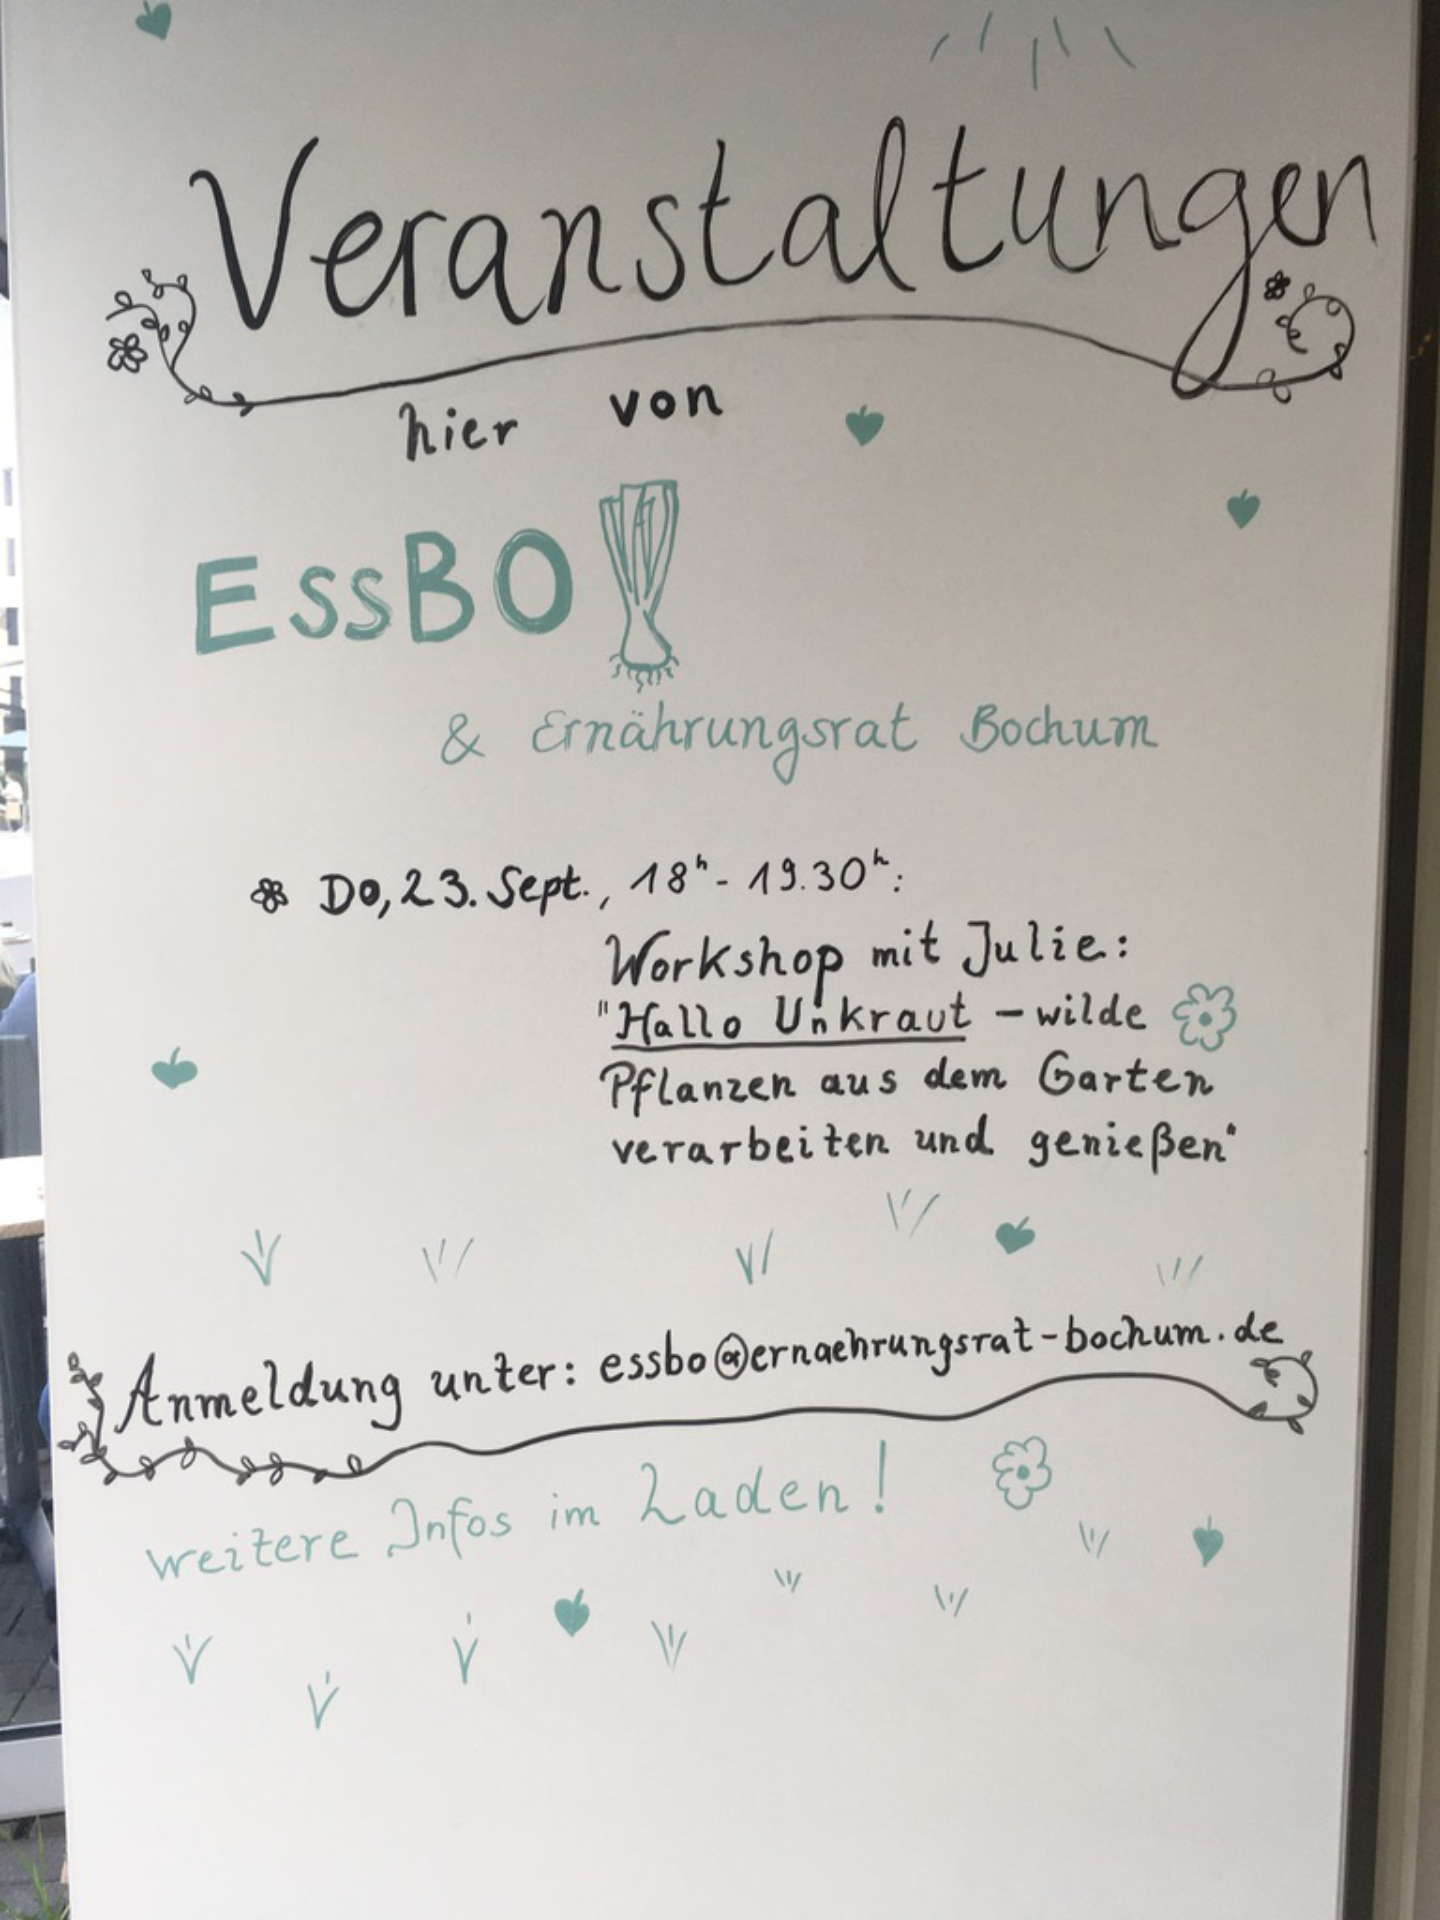 Veranstaltungen
hier von
EssBO
& Ernährungsrat Bochum
Do, 23. Sept., 18h - 19.30h:
Workshop mit Julie:
"Hallo Unkraut - wilde
Pflanzen aus dem Garten
verarbeiten und genießen"
Anmeldung unter: essbo@ernaehrungsrat-bochum.de
weitere Infos im Laden!